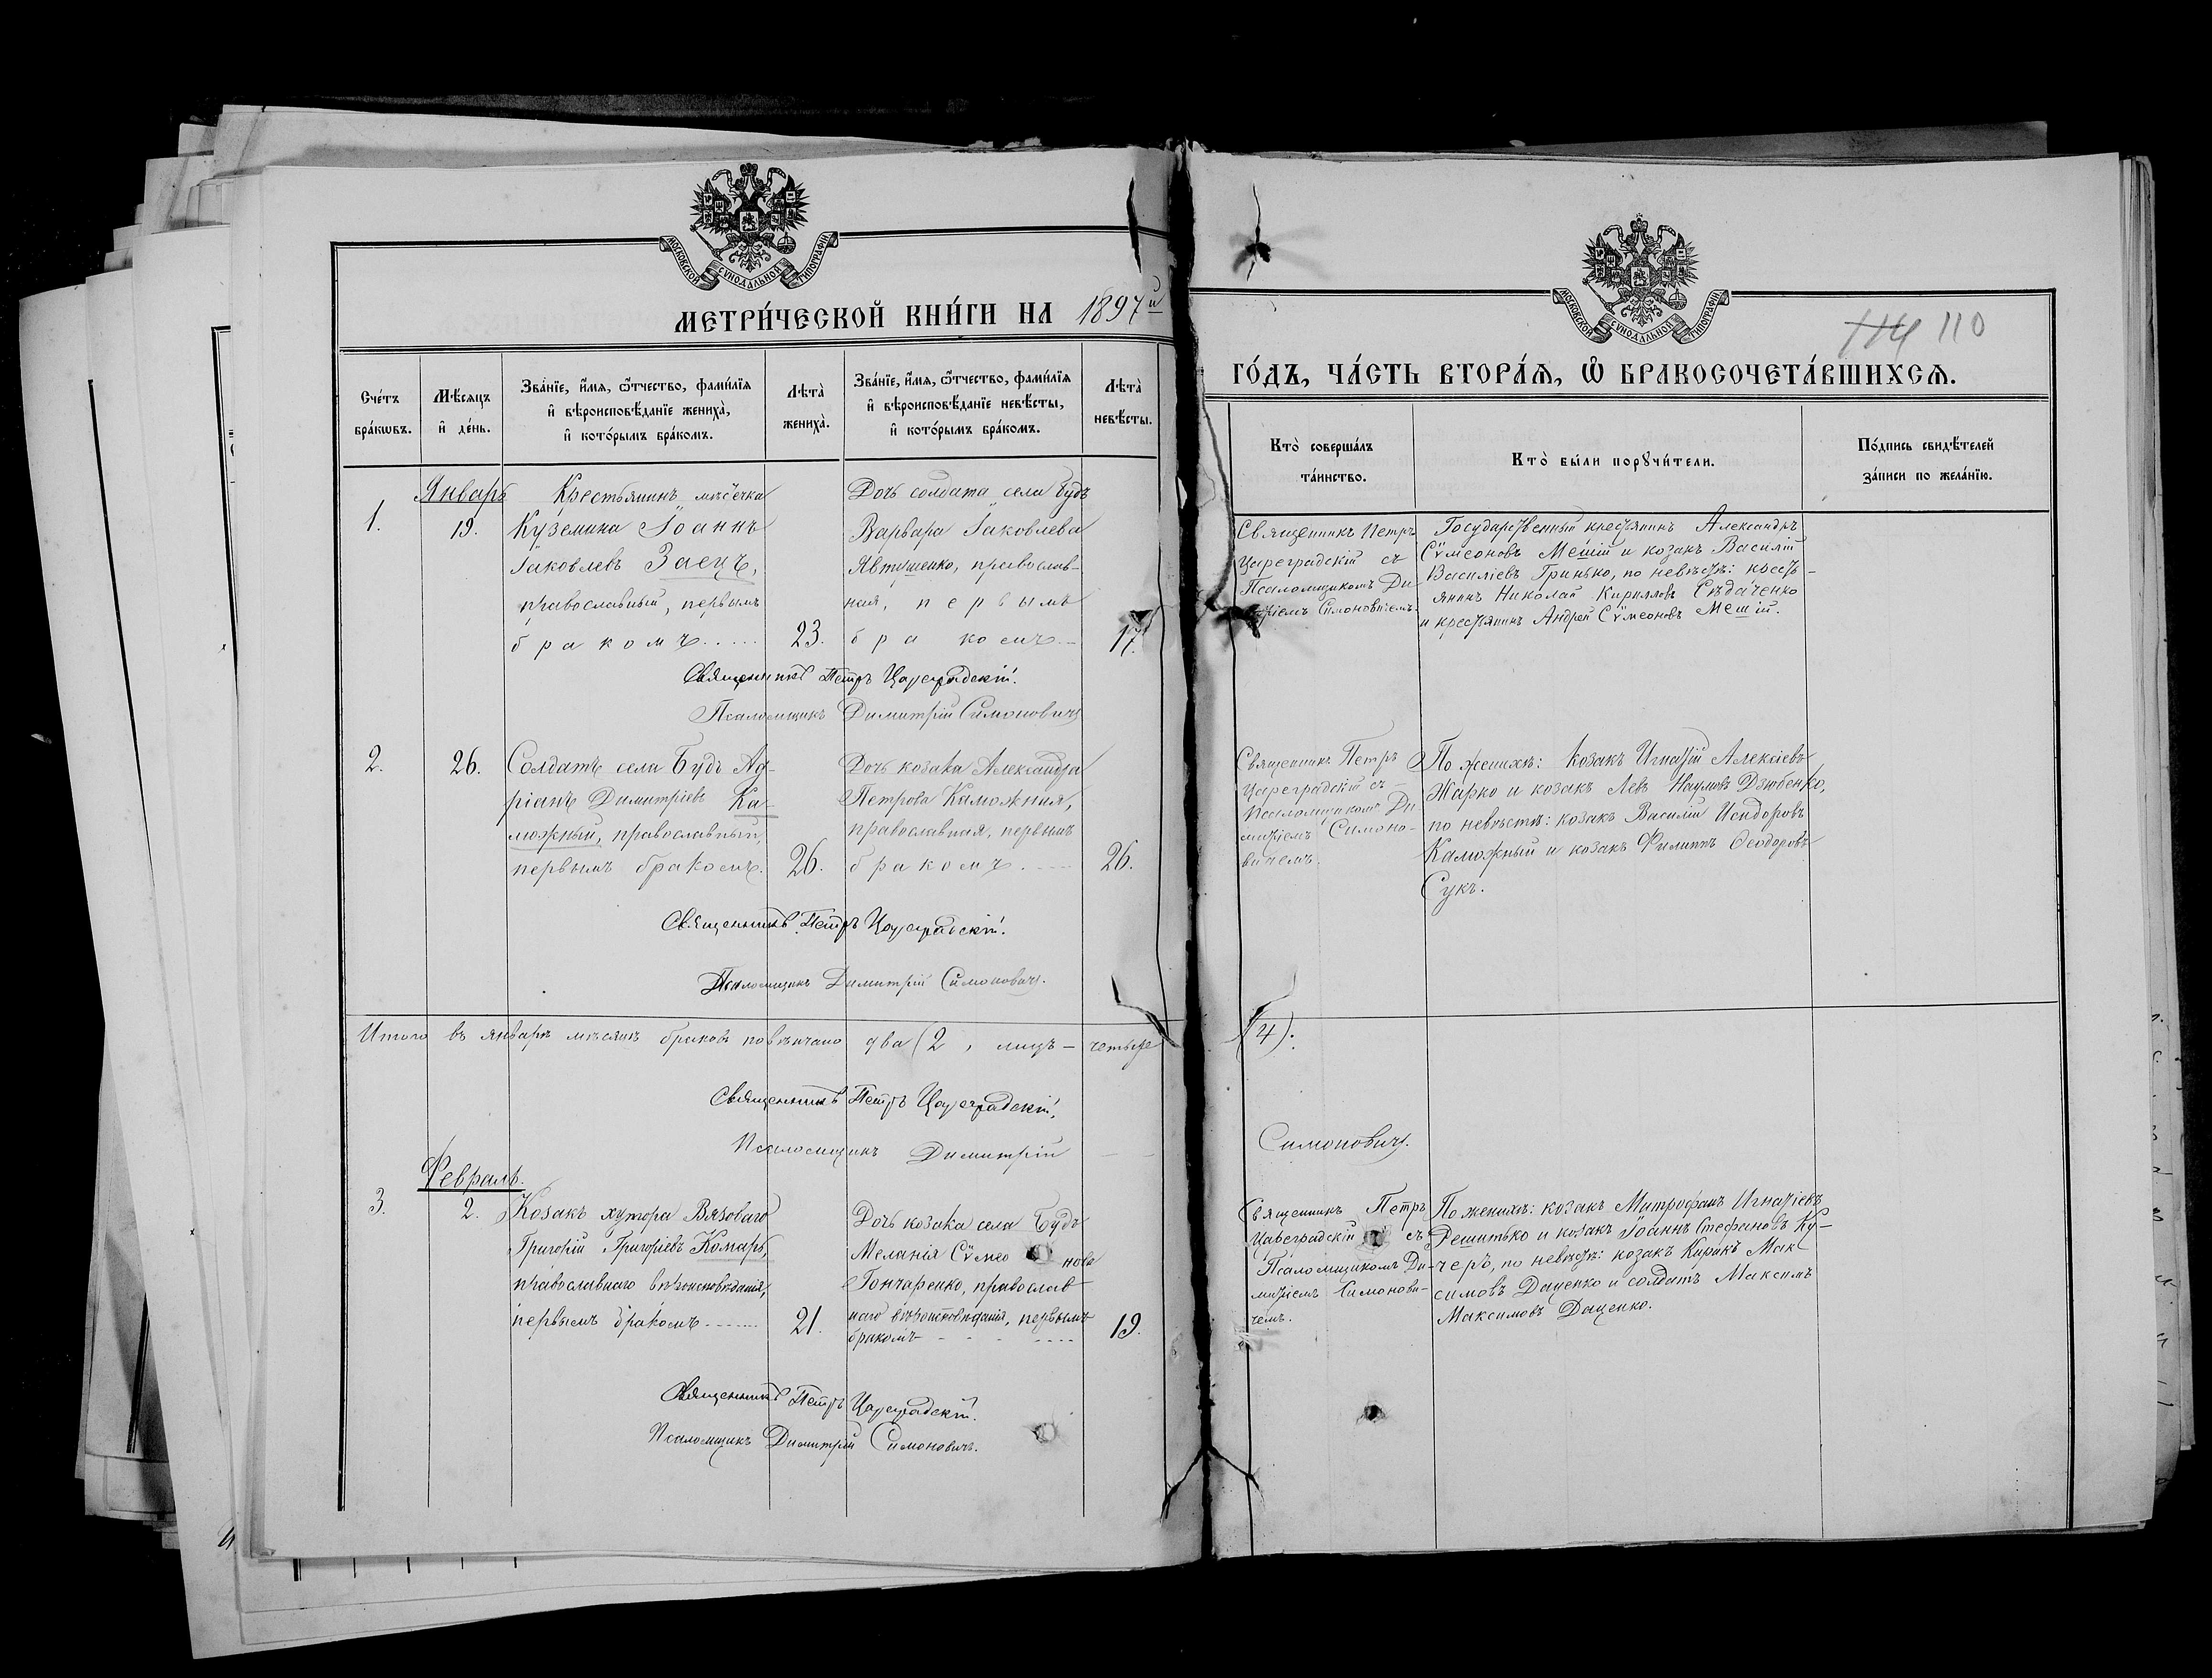 МОСКОВСКОЙ СѴНОДАЛЬНОЙ ТИПОГРАФІИ
МЕТРИ́ЧЕСКОЙ КНИ́ГИ НА 1897й
Сче́тъ бра́кѡвъ.
Мѣ́сяцъ и҆ де́нь.
Зва́нїе, и҆́мѧ, ѻ҆́тчество, фами́лїѧ и҆ вѣроисповѣ́данїе жениха̀, и҆ кото́рымъ бра́комъ.
Лѣта̀ жениха̀.
Зва́нїе, и҆́мѧ, ѻ҆́тчество, фами́лїѧ и҆ вѣроисповѣ́данїе невѣ́сты, и҆ кото́рымъ бра́комъ.
Лѣта̀ невѣ́сты.
Январь
1.
19.
Крестьянинъ мѣстечка
Куземина Іоаннъ
Іаковлевъ Заецъ,
православный, первымъ
бракомъ......
23.
Дочь солдата села Будъ
Варвара Іаковлева
Явтушенко, православ-
ная, первымъ
бра комъ
17.
Священникъ Петръ Цареградскій.
Псаломщикъ Димитрій Симоновичъ
2.
26.
Солдатъ села Будъ Ад-
ріанъ Димитріевъ Ка-
можный, православный,
первымъ бракомъ.
26.
Дочь козака Александра
Петрова Каможная,
православная, первымъ
бракомъ.
26.
Священникъ Петръ Цареградскій.
Псаломщикъ Димитрій Симоновичъ.
Итого въ январѣ мѣсяцѣ браковъ повѣнчано два (2, лицъ — четыре
Священникъ Петръ Цареградскій.
Псаломщикъ Димитрій
Февраль.
3.
2.
Козакъ хутора Вязоваго
Григорій Григоріевъ Комаръ,
православнаго вѣроисповѣданія,
первымъ бракомъ.......
21.
Дочь козака села Будъ
Меланія Сѵмео нова
Гончаренко, православ
наго вѣроисповѣданія, первымъ
бракомъ
19.
Священникъ Петръ Цареградскій.
Псаломщикъ Димитрій Симоновичъ.
МОСКОВСКОЙ СѴНОДАЛЬНОЙ ТИПОГРАФІИ
114 110
ГО́ДЪ, ЧА́СТЬ ВТОРА́Ѧ, Ѡ҆ БРАКОСОЧЕТА́ВШИХСѦ.
Кто̀ соверша́лъ та́инство.
Кто̀ бы́ли порꙋчи́тели.
По́дпись свидѣ́телей за́писи по жела́нїю.
Священникъ Петръ
Цареградскій съ
Псаломщикомъ Ди
Симоновичемъ.
Государственный крестьянинъ Александръ
Сѵмеоновъ Мешій и козакъ Василій
Василіевъ Гринько, по невѣстѣ: кресть-
янинъ Николай Кирилловъ Сѣдаченко
и крестьянинъ Андрей Сѵмеоновъ Мешій.
Священникъ Петръ
Цареградскій съ
Псаломщикомъ Ди
митріемъ Симоно-
вичемъ.
По женихѣ: козакъ Игнатій Алексіевъ
Жарко и козакъ Левъ Наумовъ Дзюбенко,
по невѣстѣ: козакъ Василій Исидоровъ
Каможный и козакъ Филиппъ Ѳеодоровъ
Сукъ.
(4).
Симоновичъ.
Священникъ Петръ
Цареградскій съ
Псаломщикомъ Ди-
митріемъ Симонови-
чемъ.
По женихѣ: козакъ Митрофанъ Игнатіевъ
Решитько и козакъ Іоаннъ Стефановъ Ку-
черъ, по невѣстѣ: козакъ Киракъ Мак
симовъ Даценко и солдатъ Максимъ
Максимовъ Даценко.